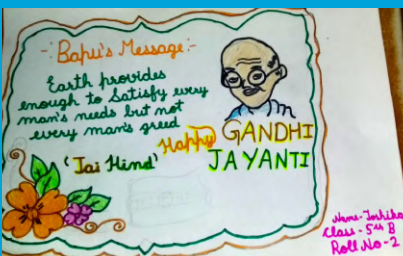 -: Bapu's Message :-
Earth provides
enough to Satisfy every
man's needs but not
every man's greed
'Jai Hind'
Happy GANDHI
JAYANTI
Name - Ishika
Class - 5th B
Roll No - 2